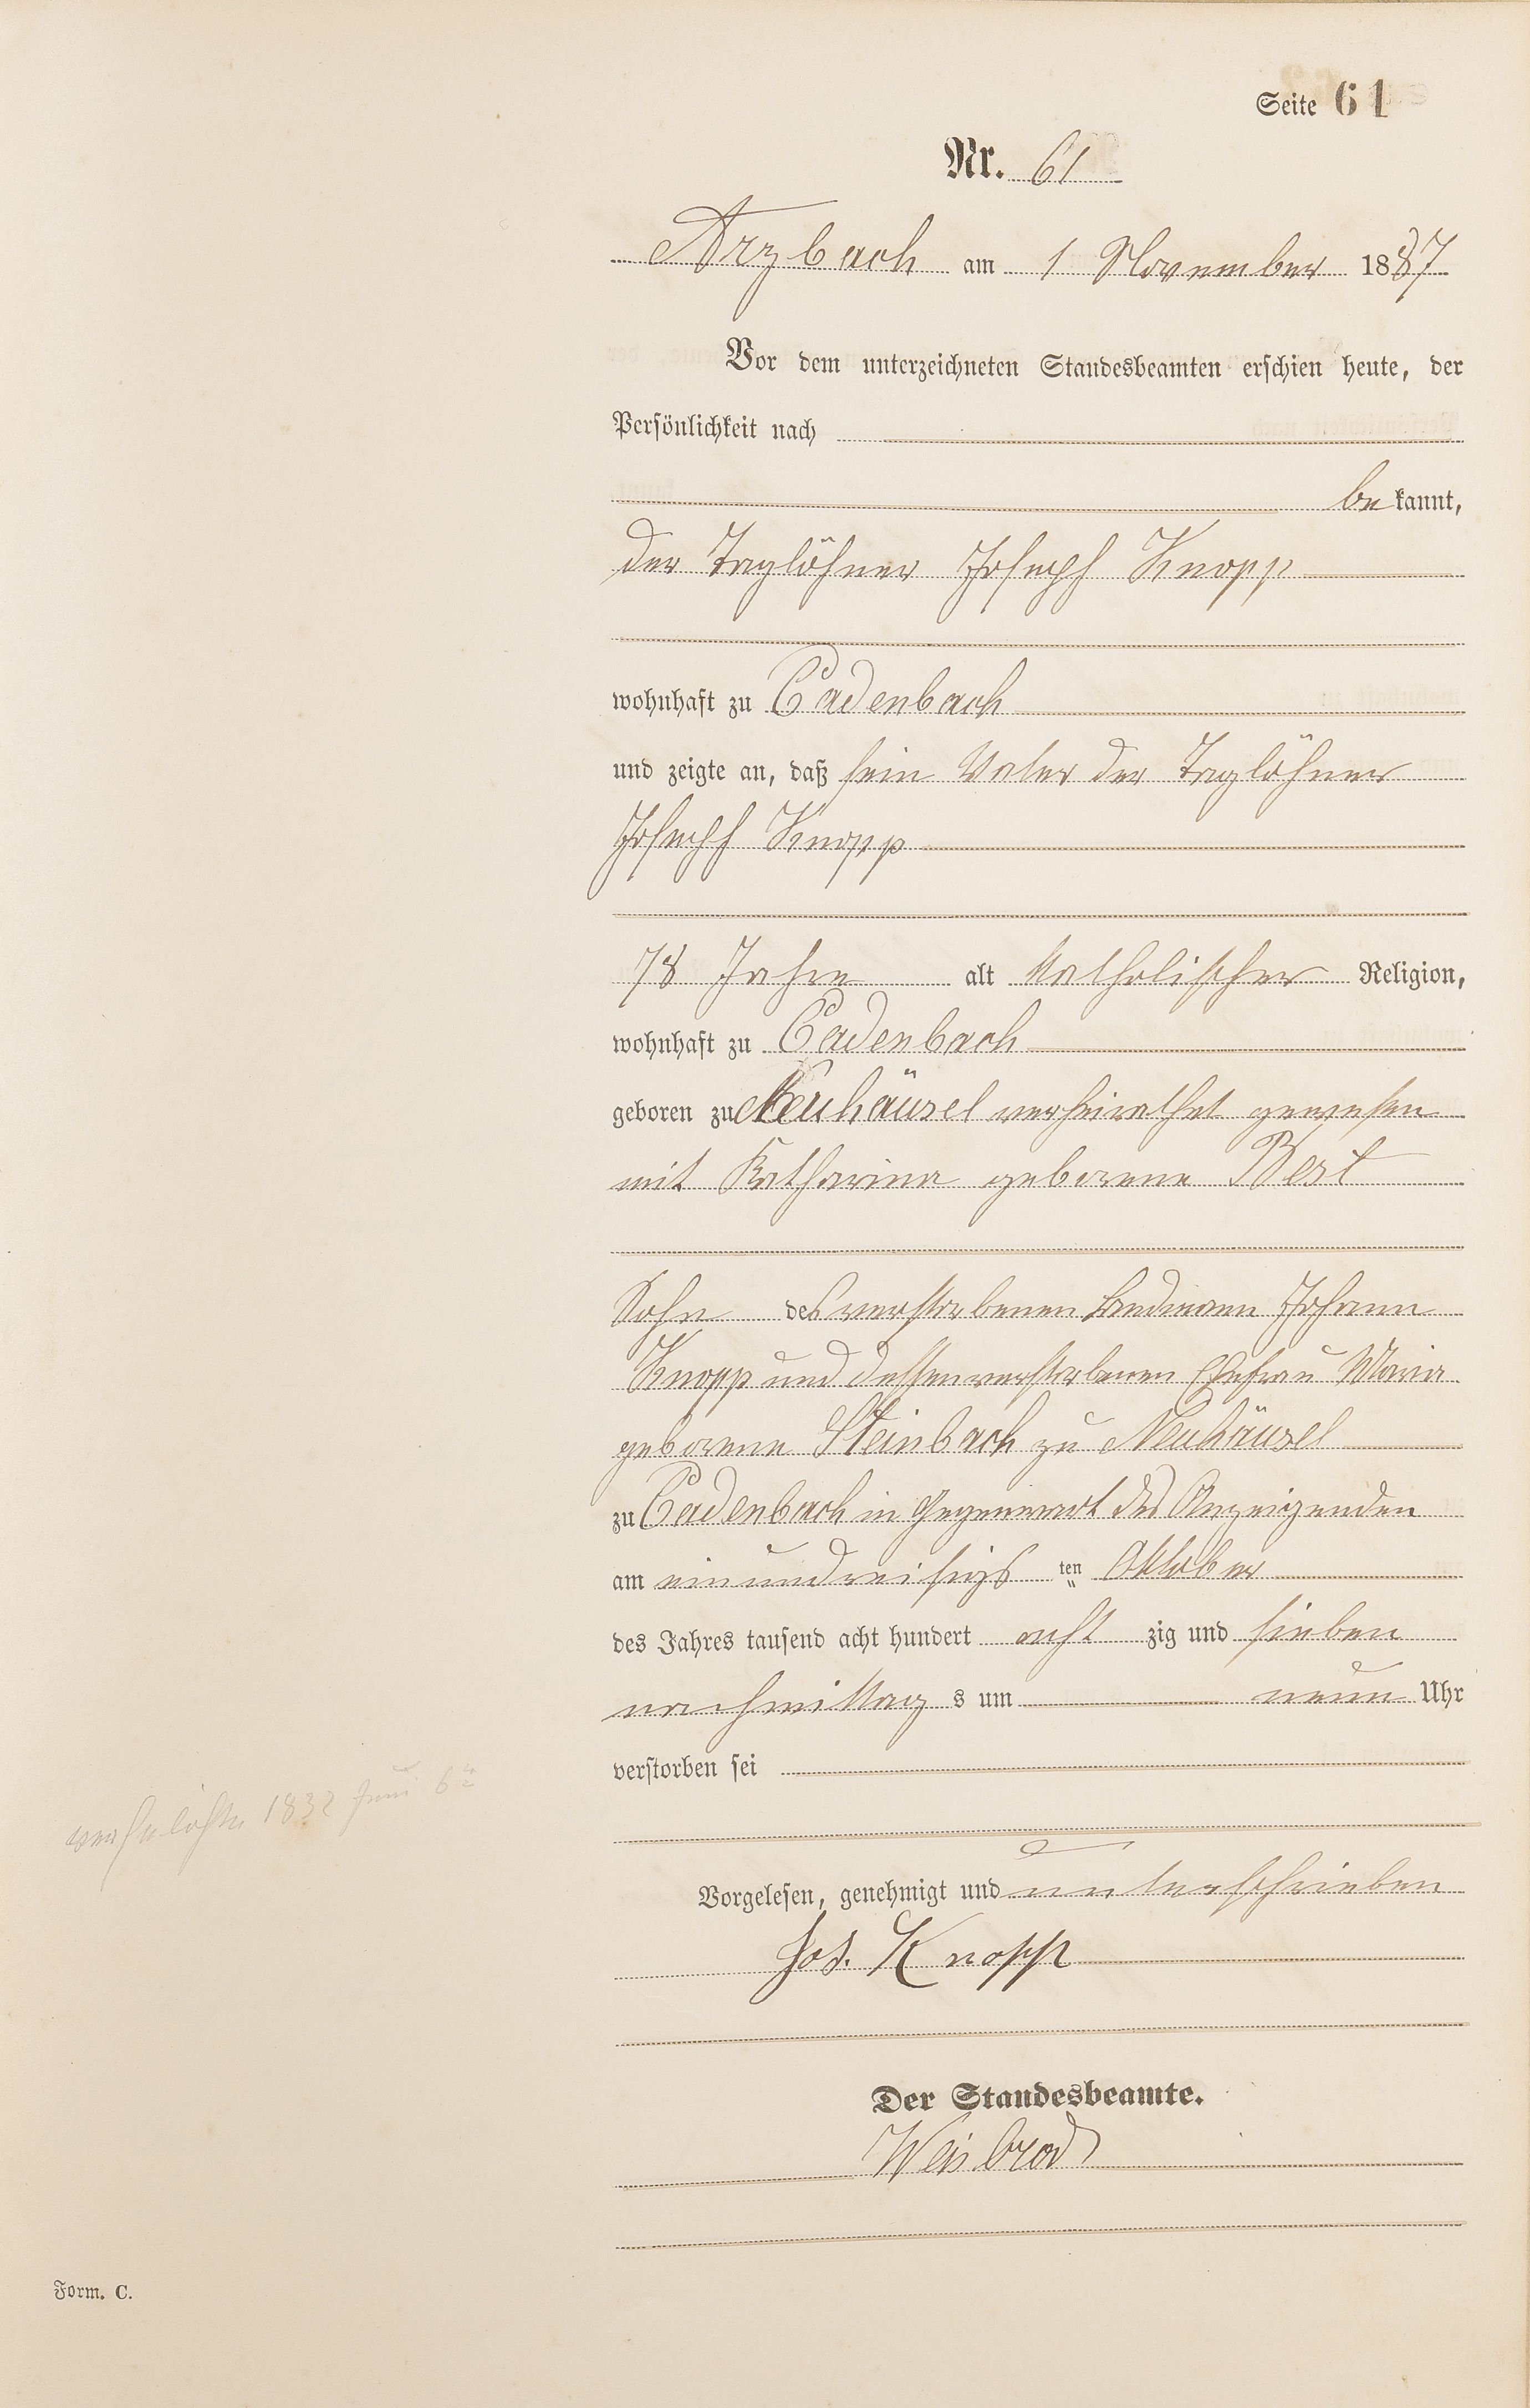 Seite 61
Nr. 61
Arzbach am 1 November 1887
Vor dem unterzeichneten Standesbeamten erschien heute, der
Persönlichkeit nach
bekannt,
der Taglöhner Joseph Knopp
wohnhaft zu Cadenbach
und zeigte an, daß sein Vater der Taglöhner
Joseph Knopp
78 Jahre alt katholischer Religion,
wohnhaft zu Cadenbach
geboren zu Neuhäusel verheirathet gewesen
mit Katharina geborene Best
Sohn des verstorbenen Landmann Johann
Knopp und dessen verstorbenen Ehefrau Maria
geborene Steinbach zu Neuhäusel
zu Cadenbach in Gegenwart des Anzeigenden
am einundreisigs ten Oktober
des Jahres tausend acht hundert acht zig und sieben
nachmittag s um neun Uhr
verstorben sei
verehelichte 1832 Juni
Vorgelesen, genehmigt und unterschrieben
Jos. Knopp
Der Standesbeamte.
Weisbrod
Form. C.